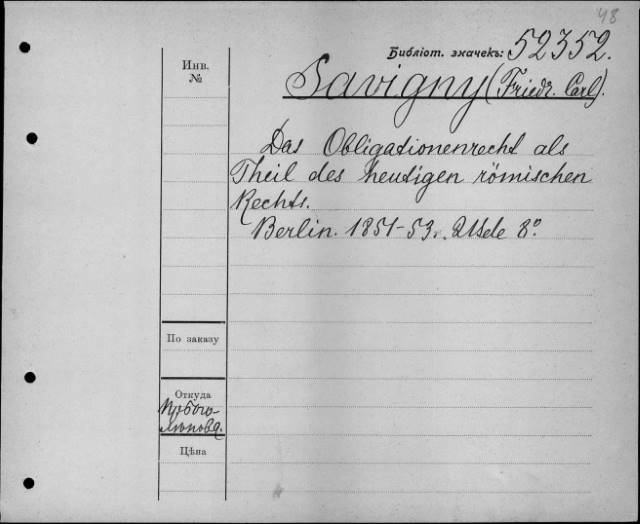 48
Библіот. значекъ: 52352.
Инв.
№
Savigny (Friedr. Carl).
Das Obligationenrecht als
Theil des heutigen römischen
Rechts.
Berlin. 1851-53. 2 Bde 8º.
По заказу
Откуда
Цѣна